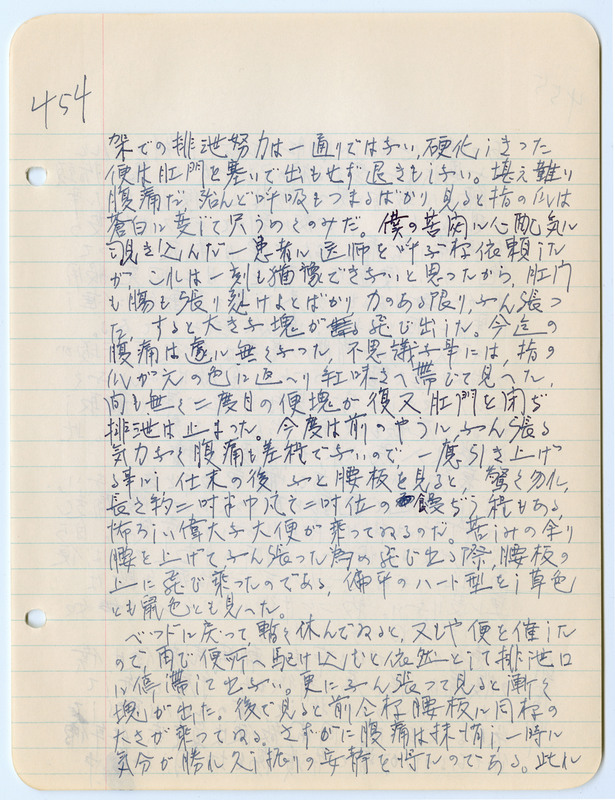 454
架での排泄努力は一通りではない、硬化しきった
便は肛門を塞いで出もせず退きもしない。堪え難い
腹痛だ 殆んど呼吸もつまるばかり、見ると指の爪は
蒼白に変じて只うめくのみだ。僕の苦悶に心配気に
覗き込んだ一患者に医師を呼ぶ様依頼した
が、これは一刻も猶豫できないと思ったから、肛門
も腸も張り裂けよとばかり力のある限り、ふん張っ
た、すると大きな塊が飛び出した。今迄の
腹痛は遂に無くなった、不思議な事には、指の
爪が元の色に返へり紅味さへ帯びて見へた、
間も無く二度目の便塊が復又肛門を閉ぢ
排泄は止まった。今度は前のやうに、ふん張る
気力なく腹痛も差程でないので、一應引き上げ
る事にし仕末の後ふと腰板を見ると、驚く勿れ、
長さ約二吋半巾凡そ二吋位の饅ぢう程もある、
怖ろしい偉大な大便が乗ってゐるのだ。苦しみの余り
腰を上げてふん張った為め飛び出る際、腰板の
上に飛び乗ったのである、偏平のハート型をし草色
とも鼠色とも見へた。
ベッドに戻って暫く休んでゐると、又もや便を催した
ので、再び便所へ駆け込むと依然として排泄口
に停滞して出ない。更にふん張って見ると漸く
塊が出た。後で見ると前令様腰板に同様の
大さが乗ってゐる。さすがに腹痛は抹消し、一時に
気分が勝れ久し振りの安静を得たのである。此れ